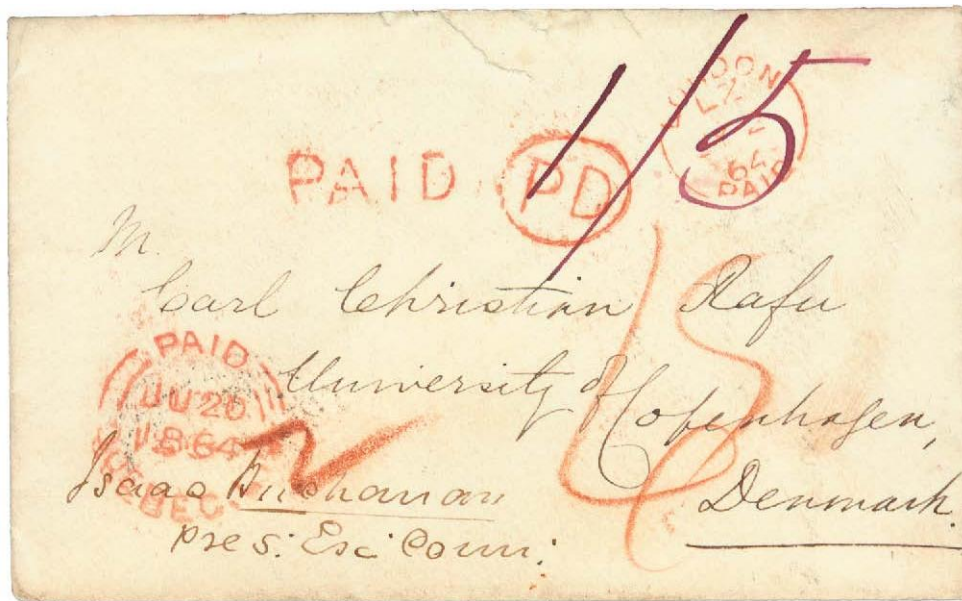 1/5
LONDON
64
PAID
PAID PD
M.
Carl Christian Rafn
University of Copenhagen,
Denmark
PAID
JU 20
1864
QUEBEC
Isaac Buchanan
Pres: Exc: Coun: